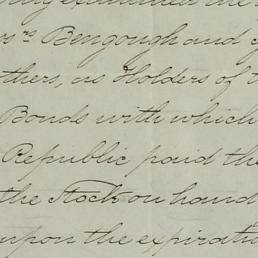 examined the
rs Bengough and
thers, as Holders of t
Bonds with which
Republic paid the
the Stock on hand
upon the expiratio